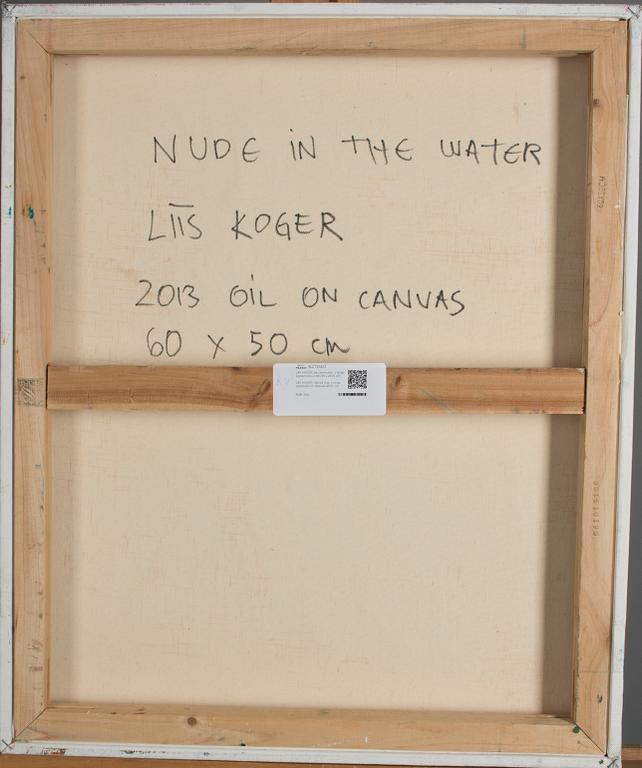 NUDE iN THE WATER
LIIS KOGER
2013 OiL ON CANVAS
60 x 50 cm